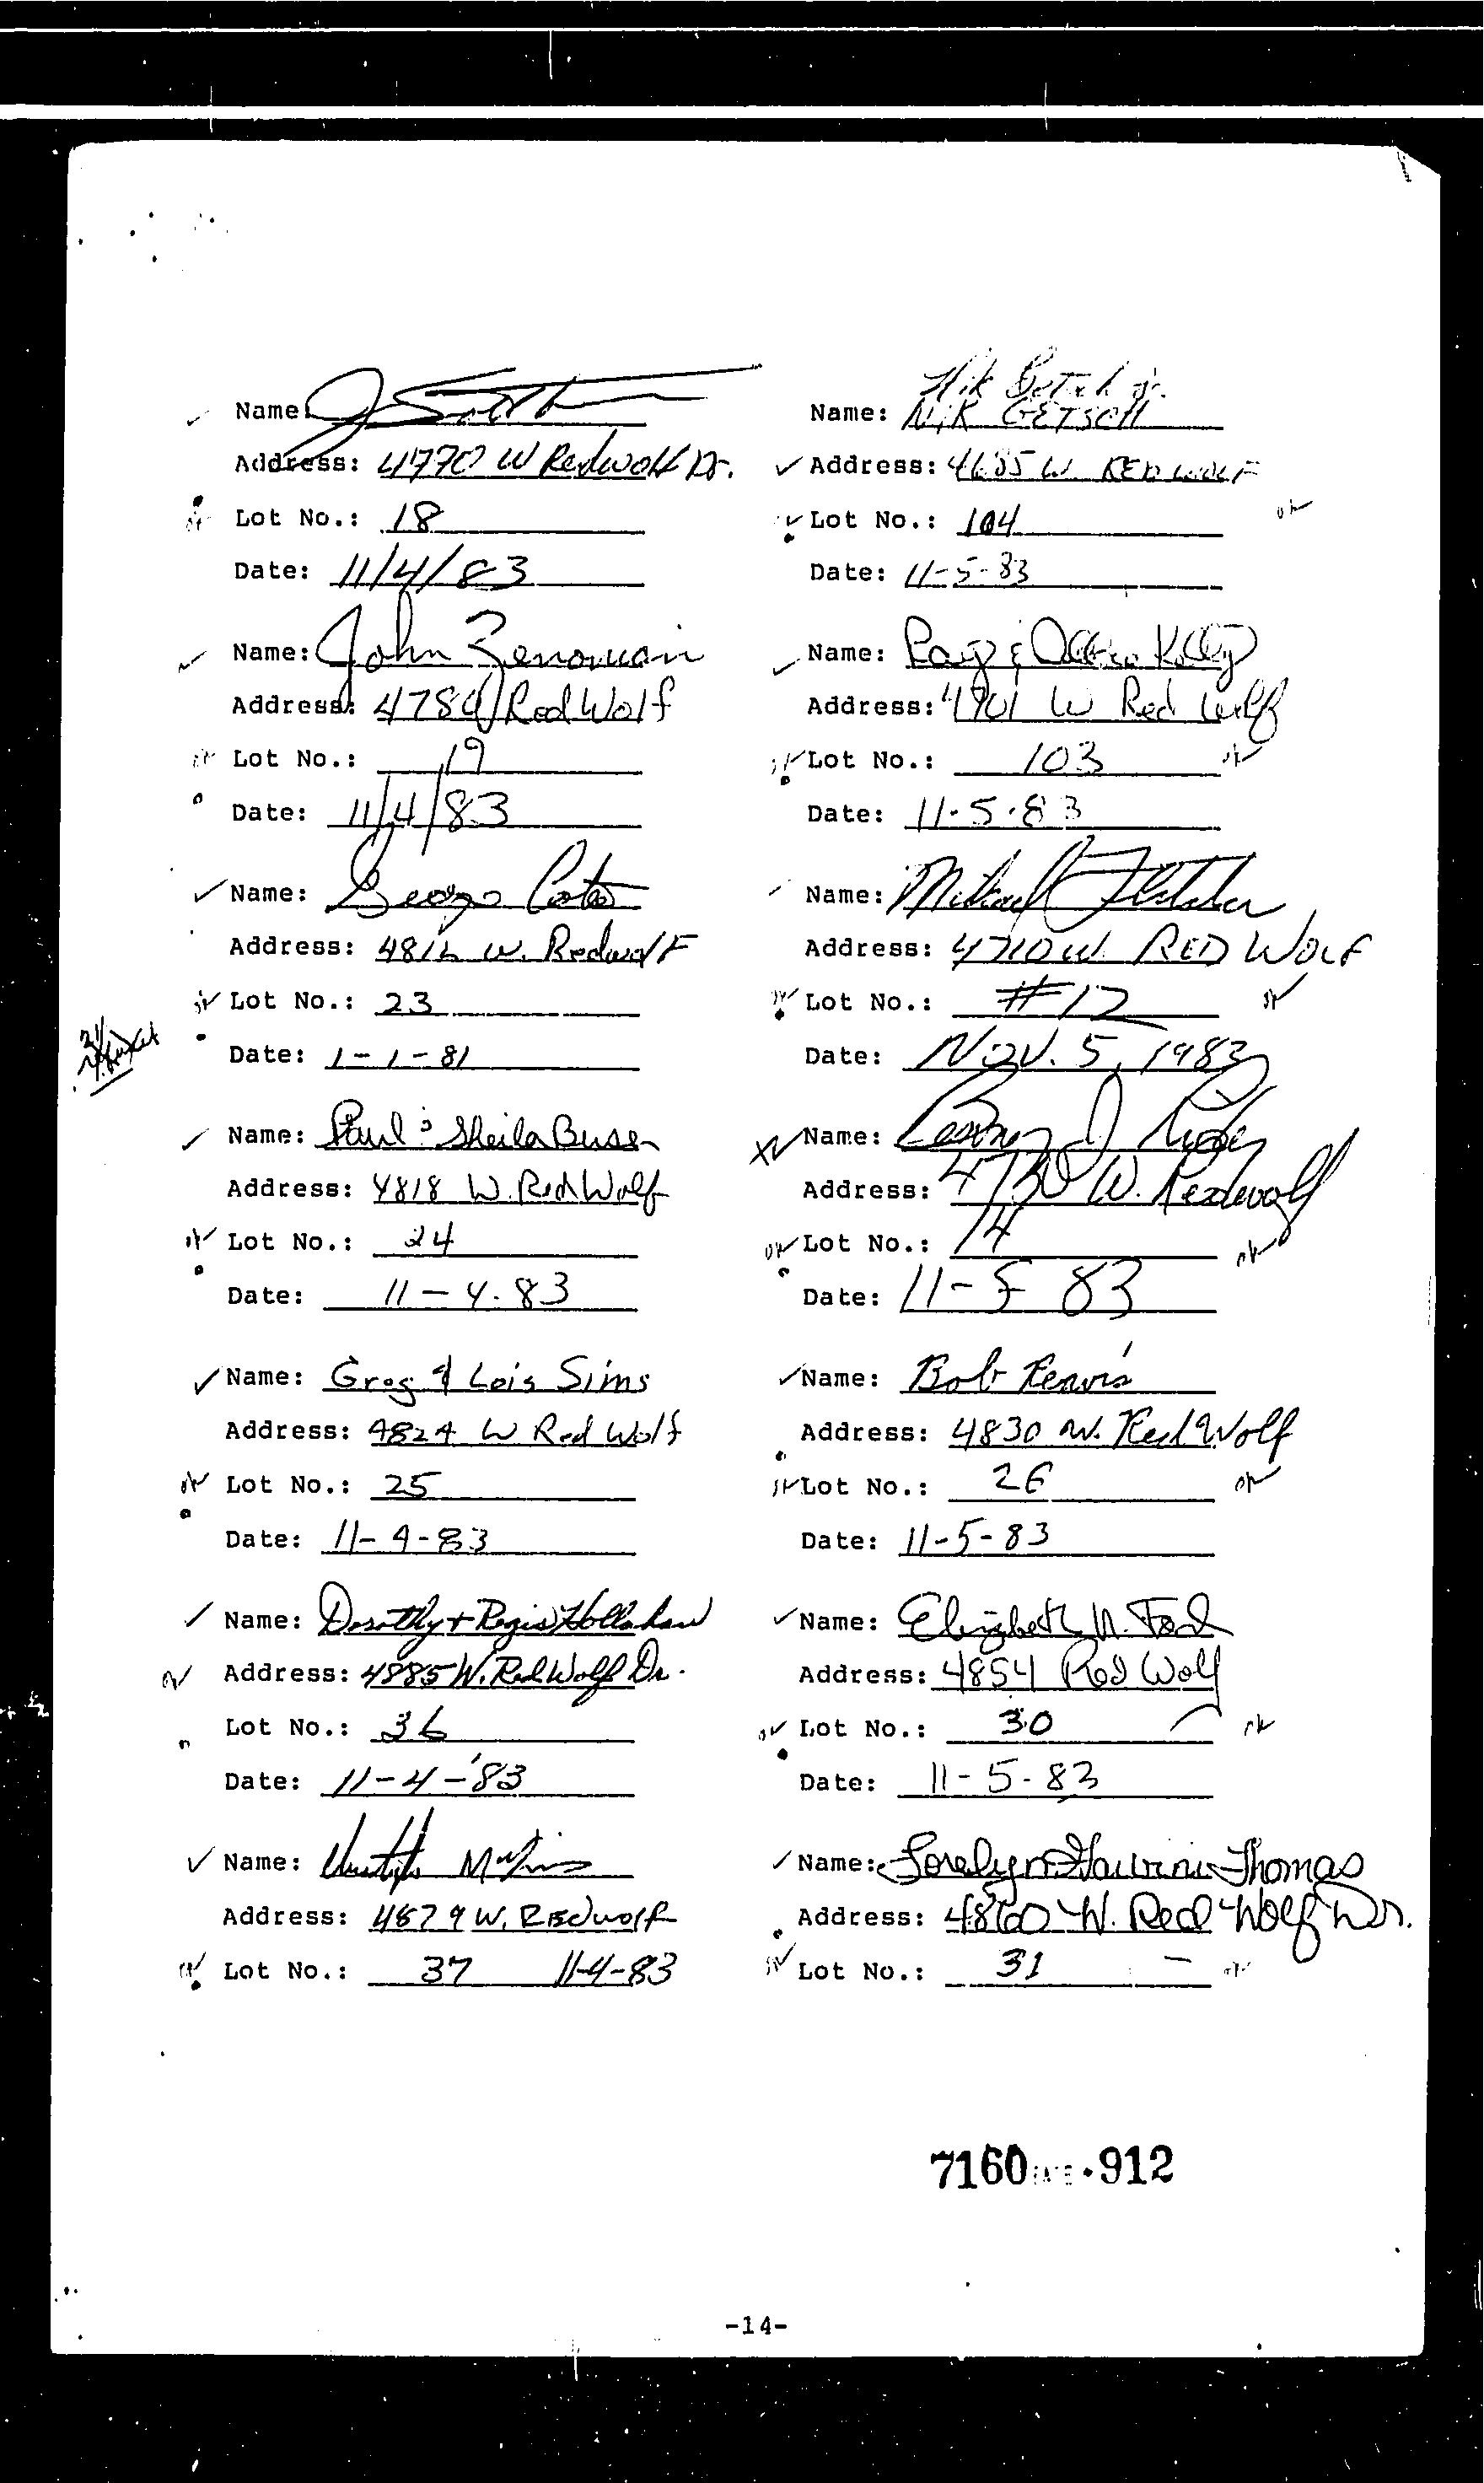 Name:
Address: 4770 W Redwolf Dr.
Lot No.: 18
Date: 11/4/83
Name: John Zenomian
Address: 4784 Red Wolf
Lot No.: 19
Date: 11/4/83
Name: George
Address: 4812 W. Redwolf
Lot No.: 23
Date: 1-1-81
Name: Paul & Sheila Busen
Address: 4818 W. Red Wolf
Lot No.: 24
Date: 11-4-83
Name: Greg & Lois Sims
Address: 4824 W Red Wolf
Lot No.: 25
Date: 11-4-83
Name: Dorothy + Regis Hollahan
Address: 4885 W. Red Wolf Dr.
Lot No.: 36
Date: 11-4-'83
Name:
Address: 4879 W. Redwolf
Lot No.: 37 11-4-83
Name: NiK GETSCH
Address: 4685 W. RED WOLF
Lot No.: 104
ok
Date: 11-5-83
Name: Kelly
Address: 4701 W Red Wolf
Lot No.: 103
ok
Date: 11-5-83
Name: Michael Fletcher
Address: 4710 W RED WOLF
Lot No.: #12
ok
Date: Nov. 5, 1983
Name:
Address: 4730 W. Redwolf
ok Lot No.: 14
ok
Date: 11-5 83
Name: Bob Reavis
Address: 4830 W. Red Wolf
Lot No.: 26
ok
Date: 11-5-83
Name: Elizabeth N. Ford
Address: 4854 Red Wolf
Lot No.: 30
ok
Date: 11-5-83
Name: Thomas
Address: 4860 W. Red Wolf Dr.
Lot No.: 31
7160 912
-14-